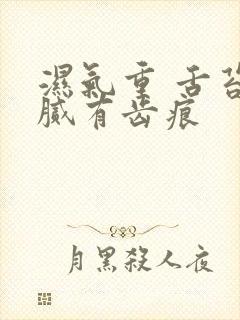 濕氣重 舌苔
膩有齒痕
月黑殺人夜